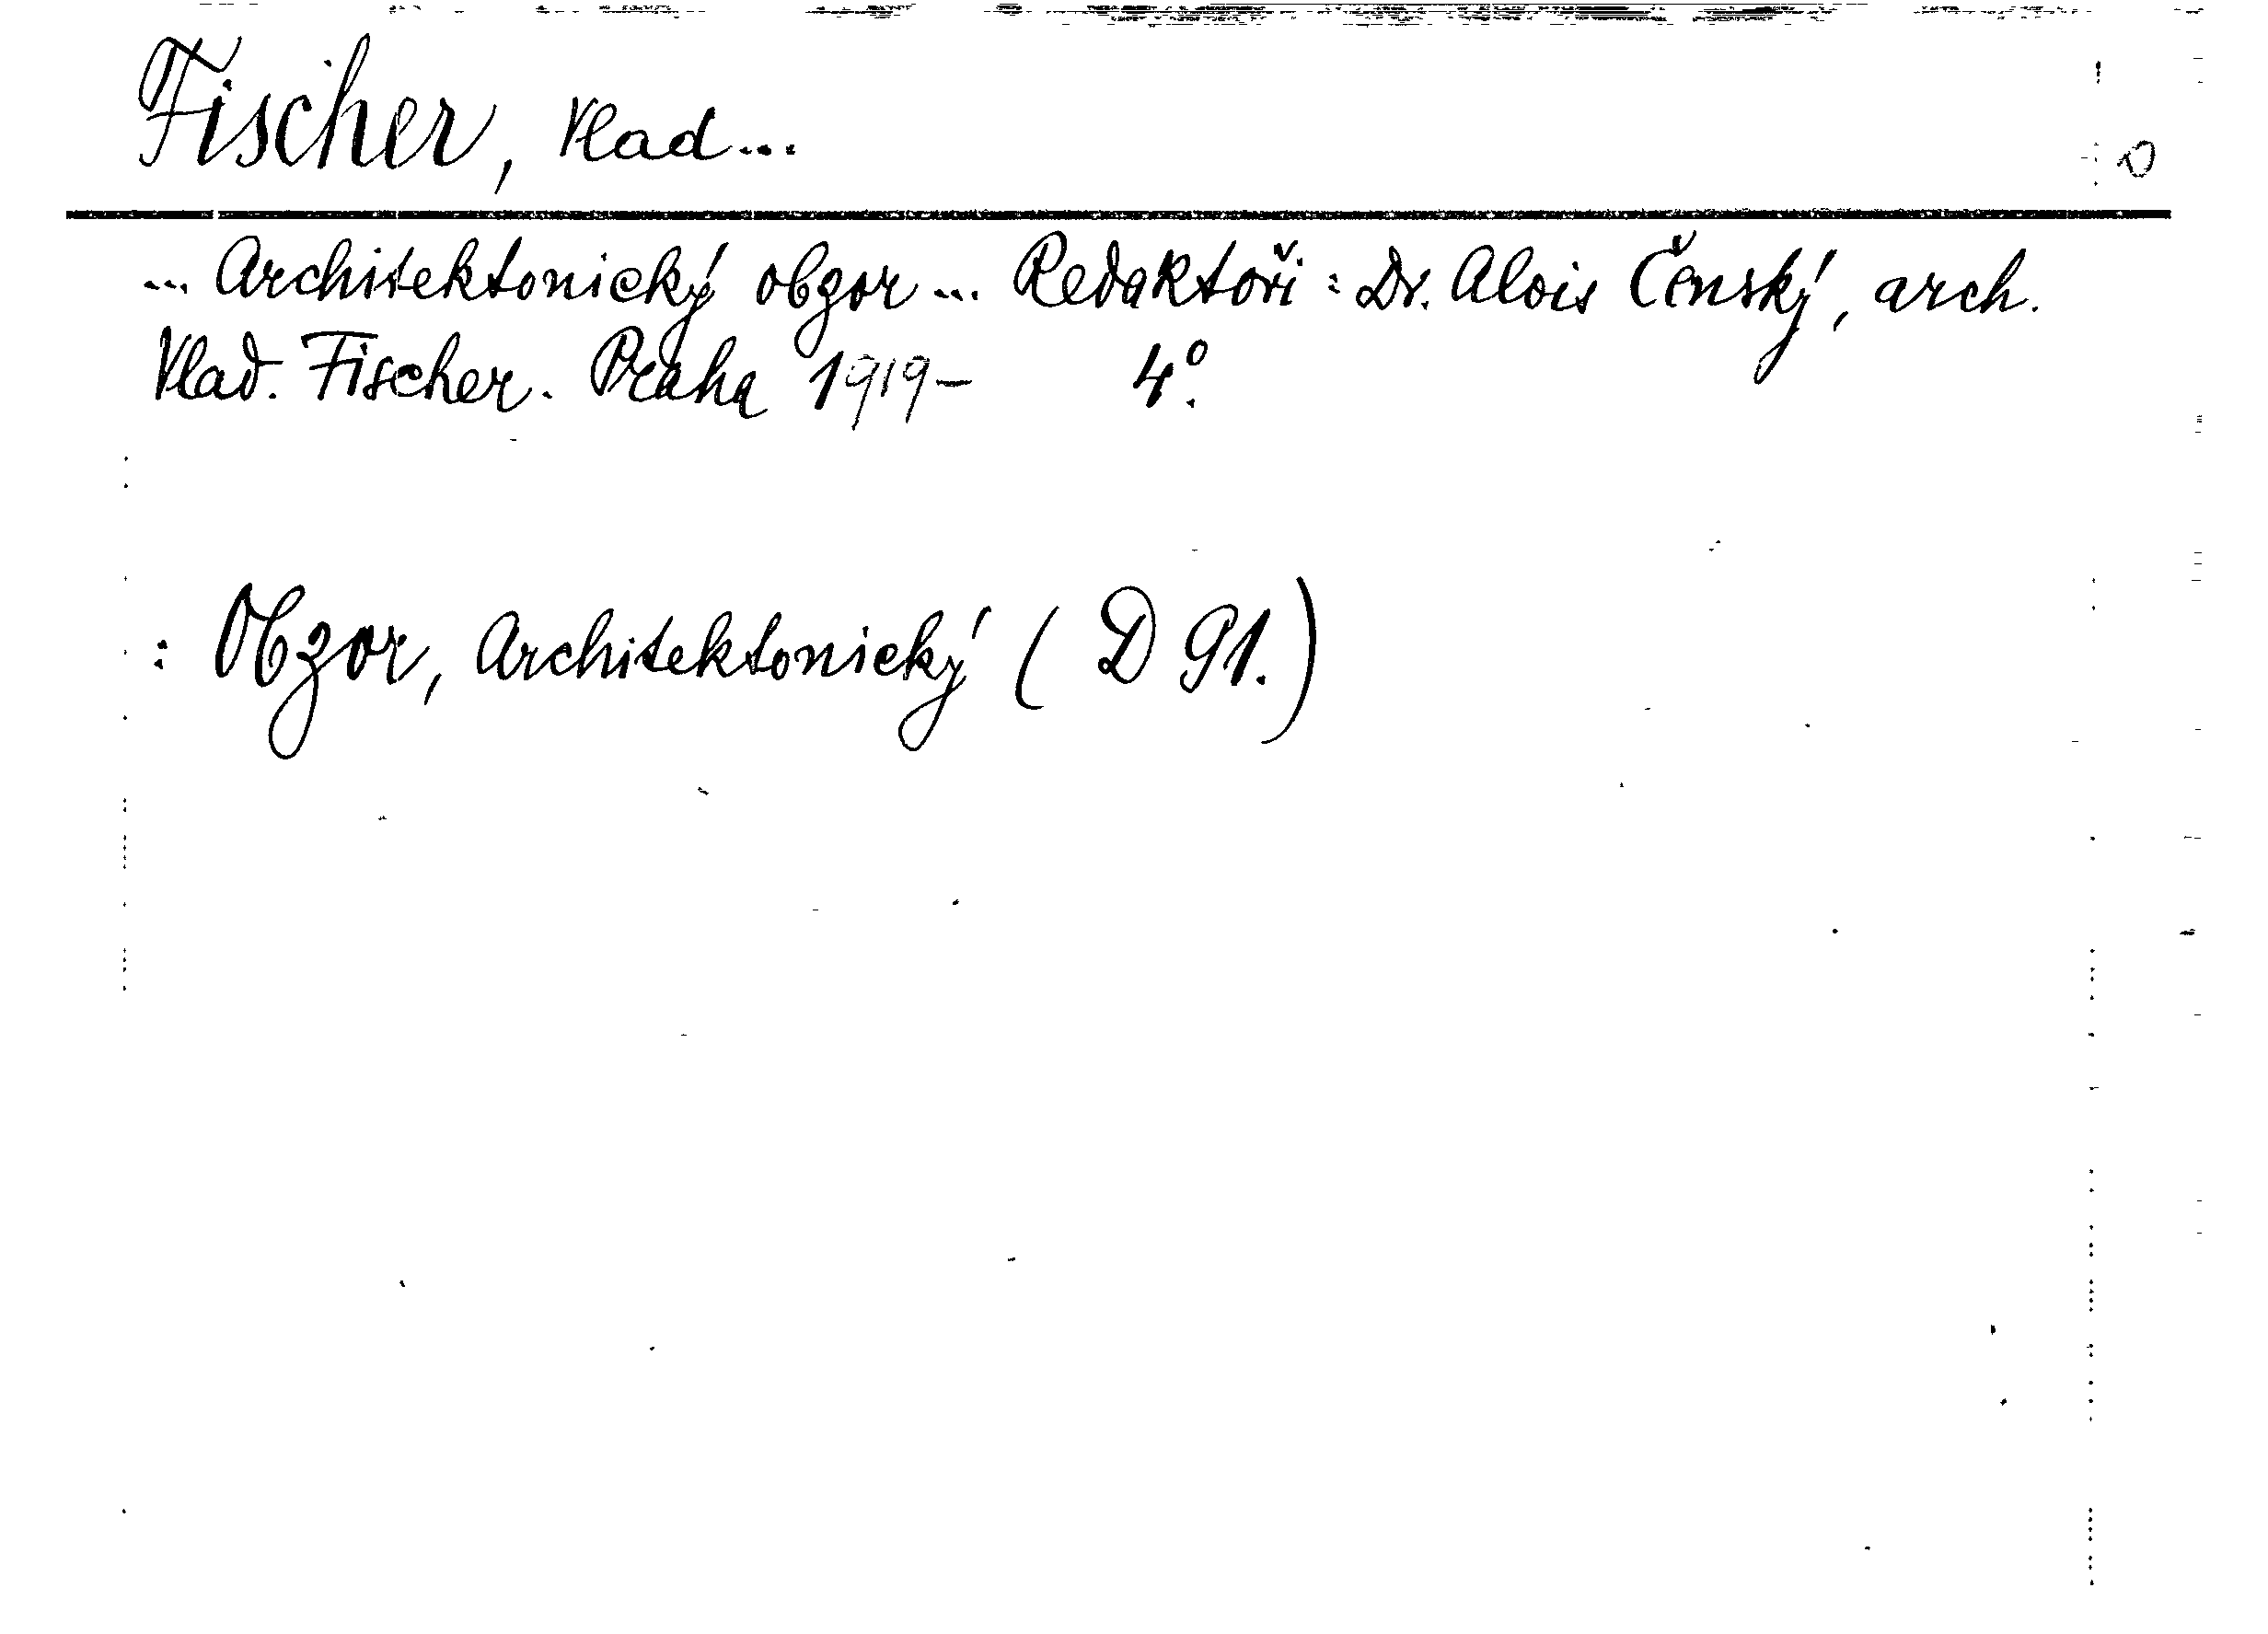 Fischer, Vlad...
... Architektonický obzor ... Redaktoři: Dr. Alois Čenský, arch.
Vlad. Fischer. Praha 1919- 4°.
: Obzor, Architektonický (D 91.)